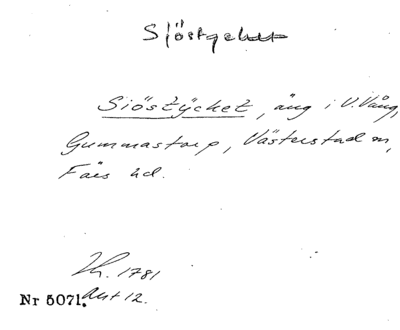 Sjöstycket
Siöstÿcket, äng i V. Vång,
Gummastorp, Västerstad sn,
Färs hd.
Lh. 1781
Akt 12.
Nr 5071.